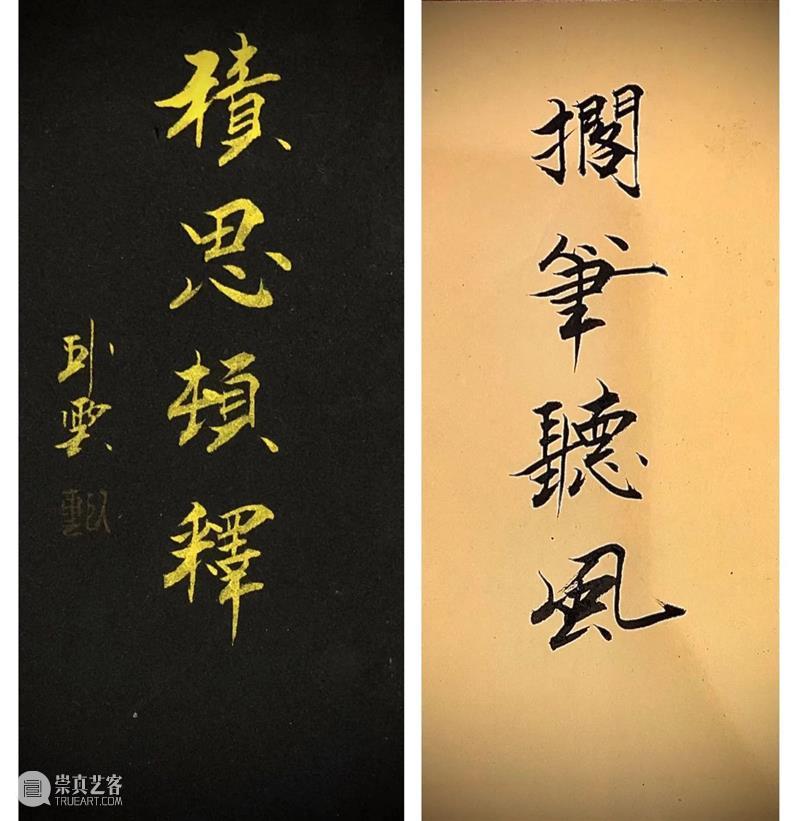 積思頓釋
卧雲
擱筆聽風
崇真艺客
TRUEART.COM